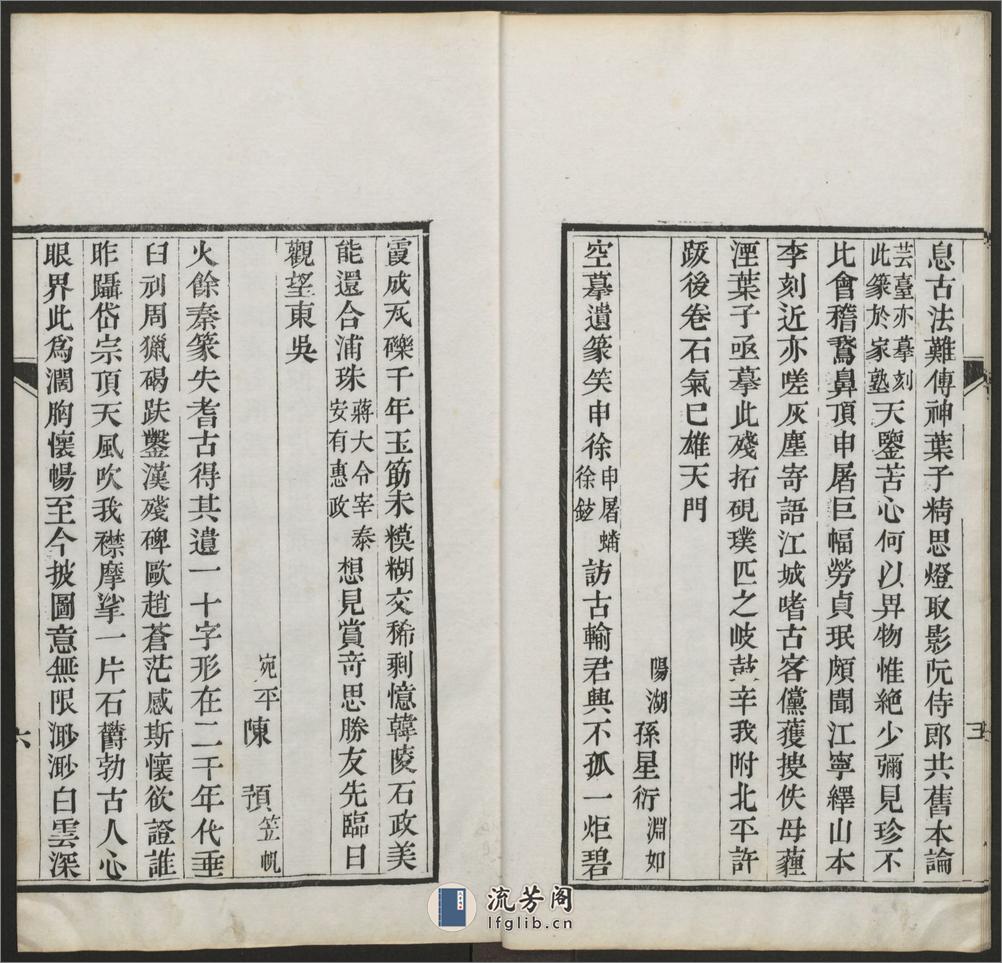 息古法難傳神葉子精思燈取影阮侍郎共舊本論
芸臺亦摹刻此篆於家塾天鑒苦心何以畀物惟絶少彌見珍不
比會稽鵞鼻頂申屠巨幅勞貞珉頗聞江寧繹山本
李刻近亦嗟灰塵寄語江城嗜古客儻獲搜佚毋薶
湮葉子亟摹此殘拓硯璞匹之岐鼓辛我附北平許
跋後卷石氣已雄天門
陽湖孫星衍淵如
空摹遺篆笑申徐申屠蝤徐鉉訪古輸君興不孤一炬碧
五
霞成瓦礫千年玉筯未糢糊交稀剩憶韓陵石政美
能還合浦珠蔣大令宰泰安有惠政想見賞竒思勝友先臨日
觀望東吳
宛平陳預笠帆
火餘秦篆失耆古得其遺一十字形在二千年代垂
臼刓周獵碣趺鑿漢殘碑歐趙蒼茫感斯懷欲證誰
昨躡岱宗頂天風吹我襟摩挲一片石欝勃古人心
眼界此爲濶胸懷暢至今披圖意無限渺渺白雲深
六
流芳阁
lfglib.cn